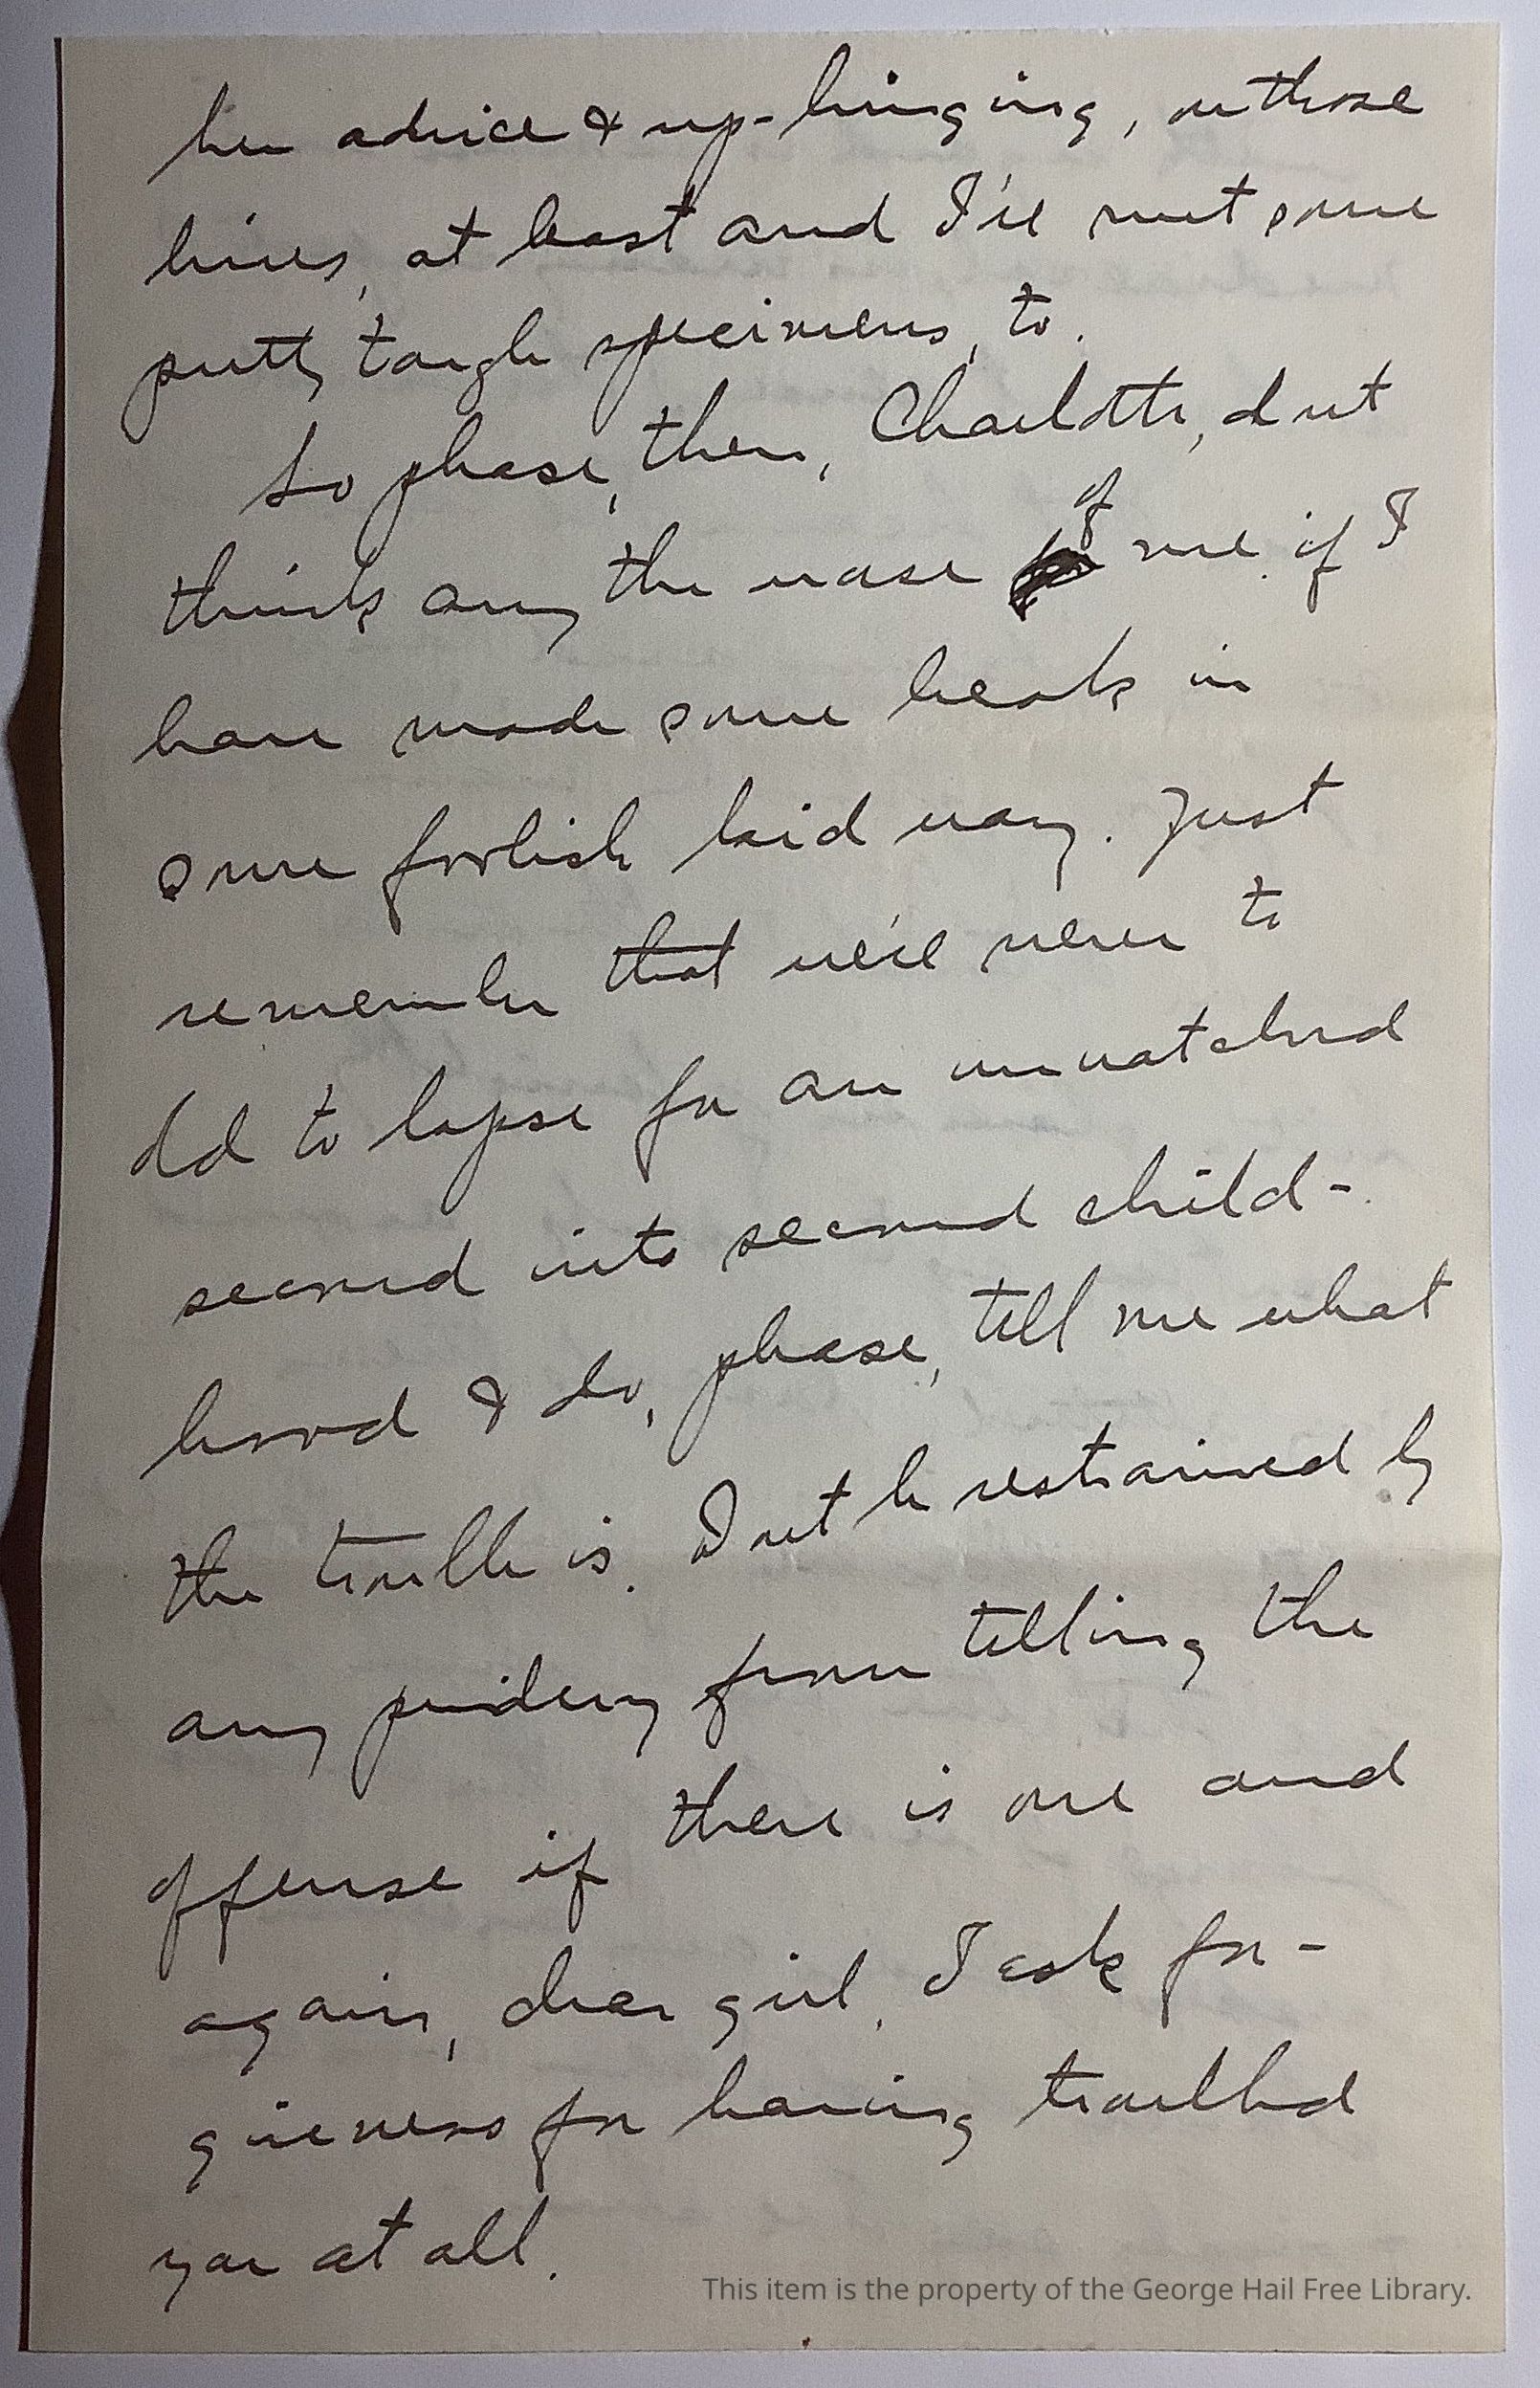 her advice & up-bringing, on those
lines, at least and I've met some
pretty tough specimens, to.
So please, then, Charlotte, don't
think any the worse of me if I
have made some break in
some foolish kid way. Just
remember that we're never to
old to lapse for an unwatched
second into second child-
hood & do, please, tell me what
the trouble is. Don't be restrained by
any prudery from telling the
offense if there is one and
again, dear girl, I ask for-
giveness for having troubled
you at all.
This item is the property of the George Hail Free Library.